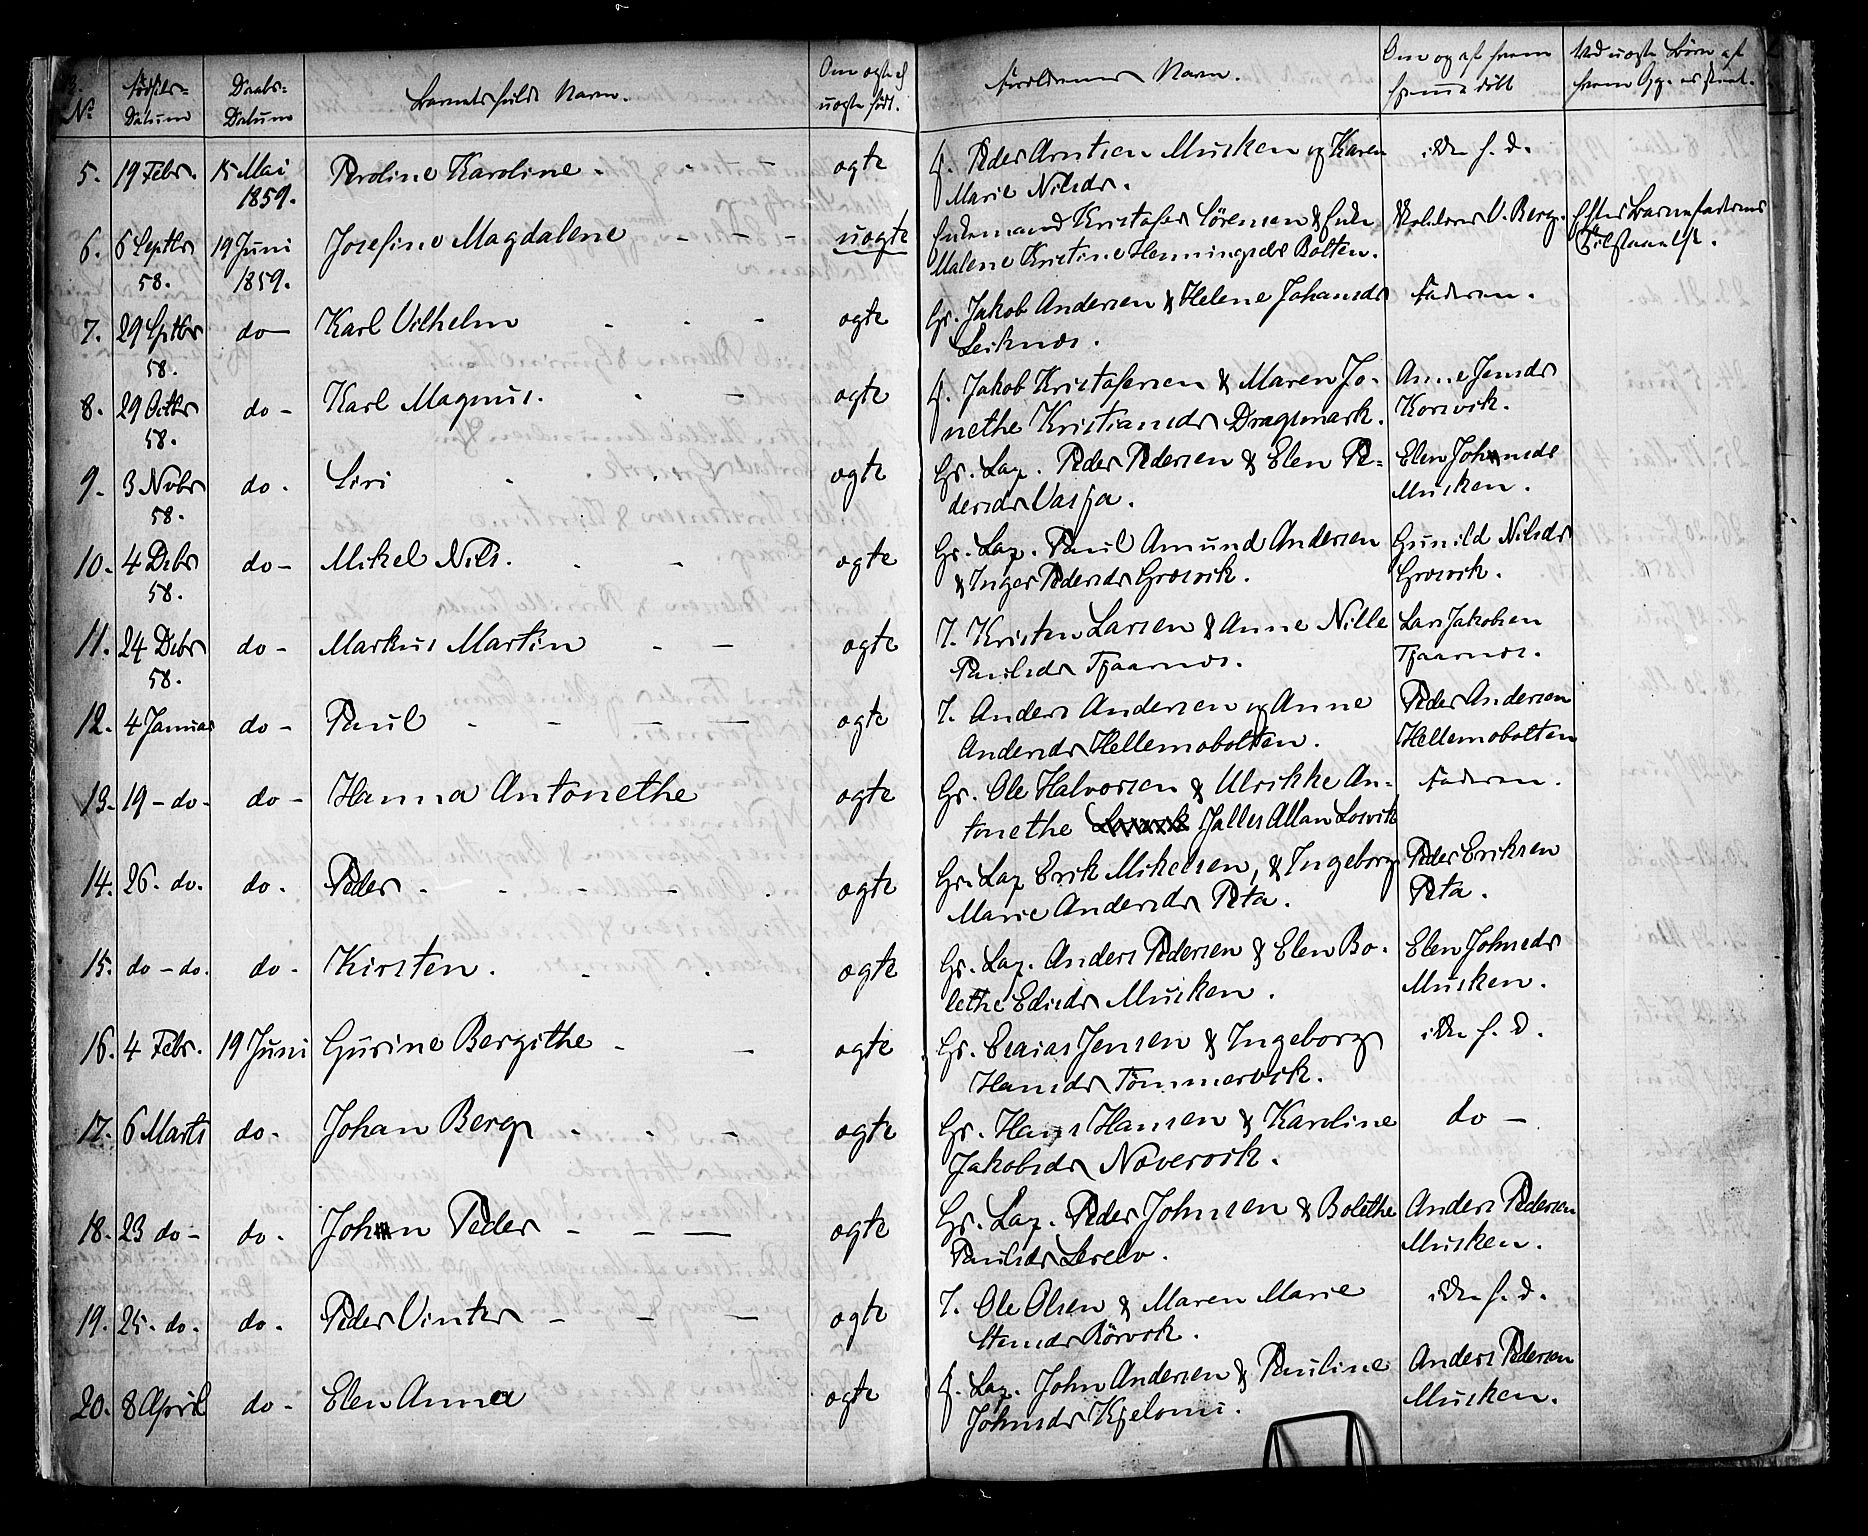 No. Fødsels-Datum Daabs-Datum Barnets fulde Navn. Om ægte el uægte født. Forældrenes Navn. Om og af hvem hjemmedøbt
5. 19 Febr. 15 Mai 1859. Peroline Karoline. ægte J. Peder Arntsen Musken og Karen ikke h. d.
Marie Nilsdr.
6. 6 Septbr 58. 19 Juni 1859. Josefine Magdalene - - - uægte Enkemand Kristofer Sörensen & Enke Skolelærer O. Berg. Efter Barnefaderens
Malene Kristine Henningsdr Bolten. Tilstaaelse.
7. 29 Sptbr 58. do - Karl Vilhelm - - - ægte Gr. Jakob Andersen & Helene Johansdr Faderen.
Leiknæs.
8. 29 Octbr 58. do - Karl Magnus. - - ægte J. Jakob Kristofersen & Maren Jo- Anne Jensdr
nethe Kristiansdr Dragsmark. Korsvik.
9. 3 Novbr 58. do. Siri - - ægte Gr. Lap. Peder Pedersen & Elen Pe- Elen Johnsdr
dersdr Vasja. Musken.
10. 4 Dcbr 58. do - Mikel Nils. - - ægte Gr. Lap. Paul Amund Andersen Gunild Nilsdr
& Inger Pedersdr Grøsvik. Grøsvik.
11. 24 Dcbr 58. do - Markus Martin - - ægte I. Kristen Larsen & Anne Nille Lars Jakobsen
Paulsdr Tjaarnæs. Tjaarnæs.
12. 4 Januar do - Paul - - - - ægte I. Anders Andersen og Anne Peder Andersen
Andersdr Hellemobotten. Hellemobotten
13. 19 - do - do - Hanna Antonethe ægte Gr. Ole Halvorsen & Ulrikke An- Faderen.
tonethe Jalles Allan Losvik
14. 26. do. do. Peder - - - - ægte Gr. Lap Erik Mikelsen, & Ingeborg Peder Eriksen
Marie Andersdr Peta. Peta.
15. do - do. do. Kirsten. - - ægte Gr. Lap. Anders Pedersen & Elen Bo- Elen Johnsdr
lethe Edisdr Musken. Musken.
16. 4 Febr. 19 Juni Gurine Bergithe - - ægte Gr. Esaias Jensen & Ingeborg ikke h. d.
Hansdr Tömmervik.
17. 6 Marts do. Johan Berg - - - ægte Gr. Hans Hansen & Karoline do -
Jakobsdr Næververik.
18. 23 do - do. John Peder - - - ægte Gr. Lap. Peder Johnsen & Bolethe Anders Pedersen
Paulsdr Serelv. Musken.
19. 25. do. do. Peder Vinter - - - ægte I. Ole Olsen & Maren Marie ikke h. d.
Hansdr Rörvik.
20. 8 April do - Elen Anna ægte J. Lap. John Andersen & Pauline Anders Pedersen
Johnsdr Kjelomi. Musken.